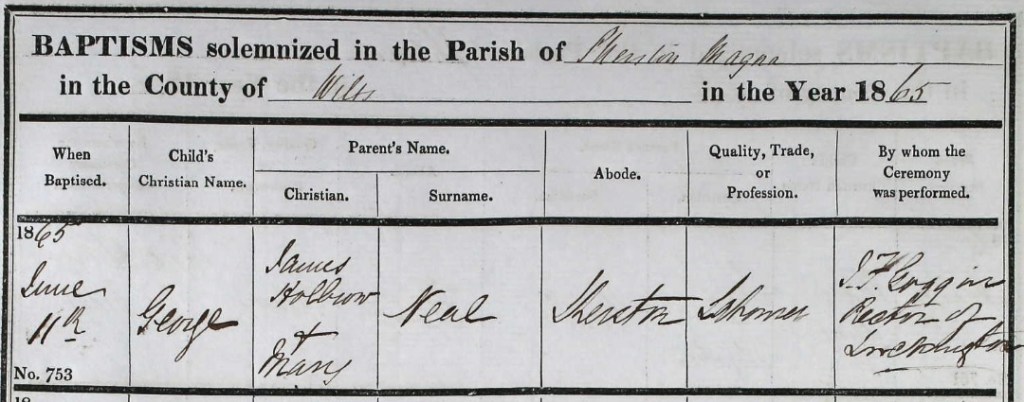 BAPTISMS solemnized in the Parish of Sherston Magna
in the County of Wilts in the Year 1865
When Baptised.
Child's Christian Name.
Parent's Name.
Christian.
Surname.
Abode.
Quality, Trade, or Profession.
By whom the Ceremony was performed.
1865
June
11th
No. 753
George
James
Holbrow
+
Mary
Neal
Sherston
Rector of
Luckington
18